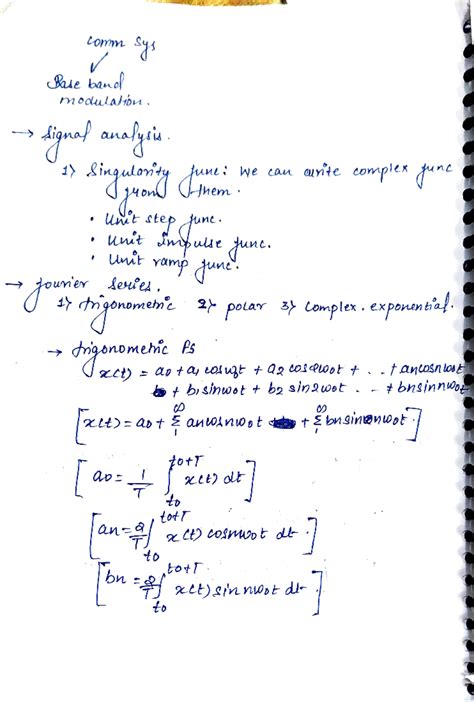 comm Sys
Base band
modulation.
→ Signal analysis.
1) Singularity func: We can write complex func
from them.
• Unit step func.
• Unit impulse func.
• Unit ramp func.
→ fourier series.
1) trigonometric 2) polar 3) complex. exponential.
→ trigonometric Fs
x(t) = a0 + a1 cosω0t + a2 cos2ω0t + . . + an cosnω0t
+ b1 sinω0t + b2 sin2ω0t . . + bn sinnω0t
[x(t) = a0 + ∞Σ1 an cosnω0t + ∞Σ1 bn sinnω0t]
[a0 = 1/T ∫t0^t0+T x(t) dt]
[an = 2/T ∫t0^t0+T x(t) cosnω0t dt.]
[bn = 2/T ∫t0^t0+T x(t) sin nω0t dt.]